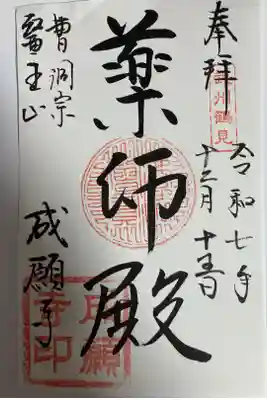 奉拝
武州鶴見
令和七年
十二月十五日
薬師殿
曹洞宗
医王山
成願寺
成願寺印